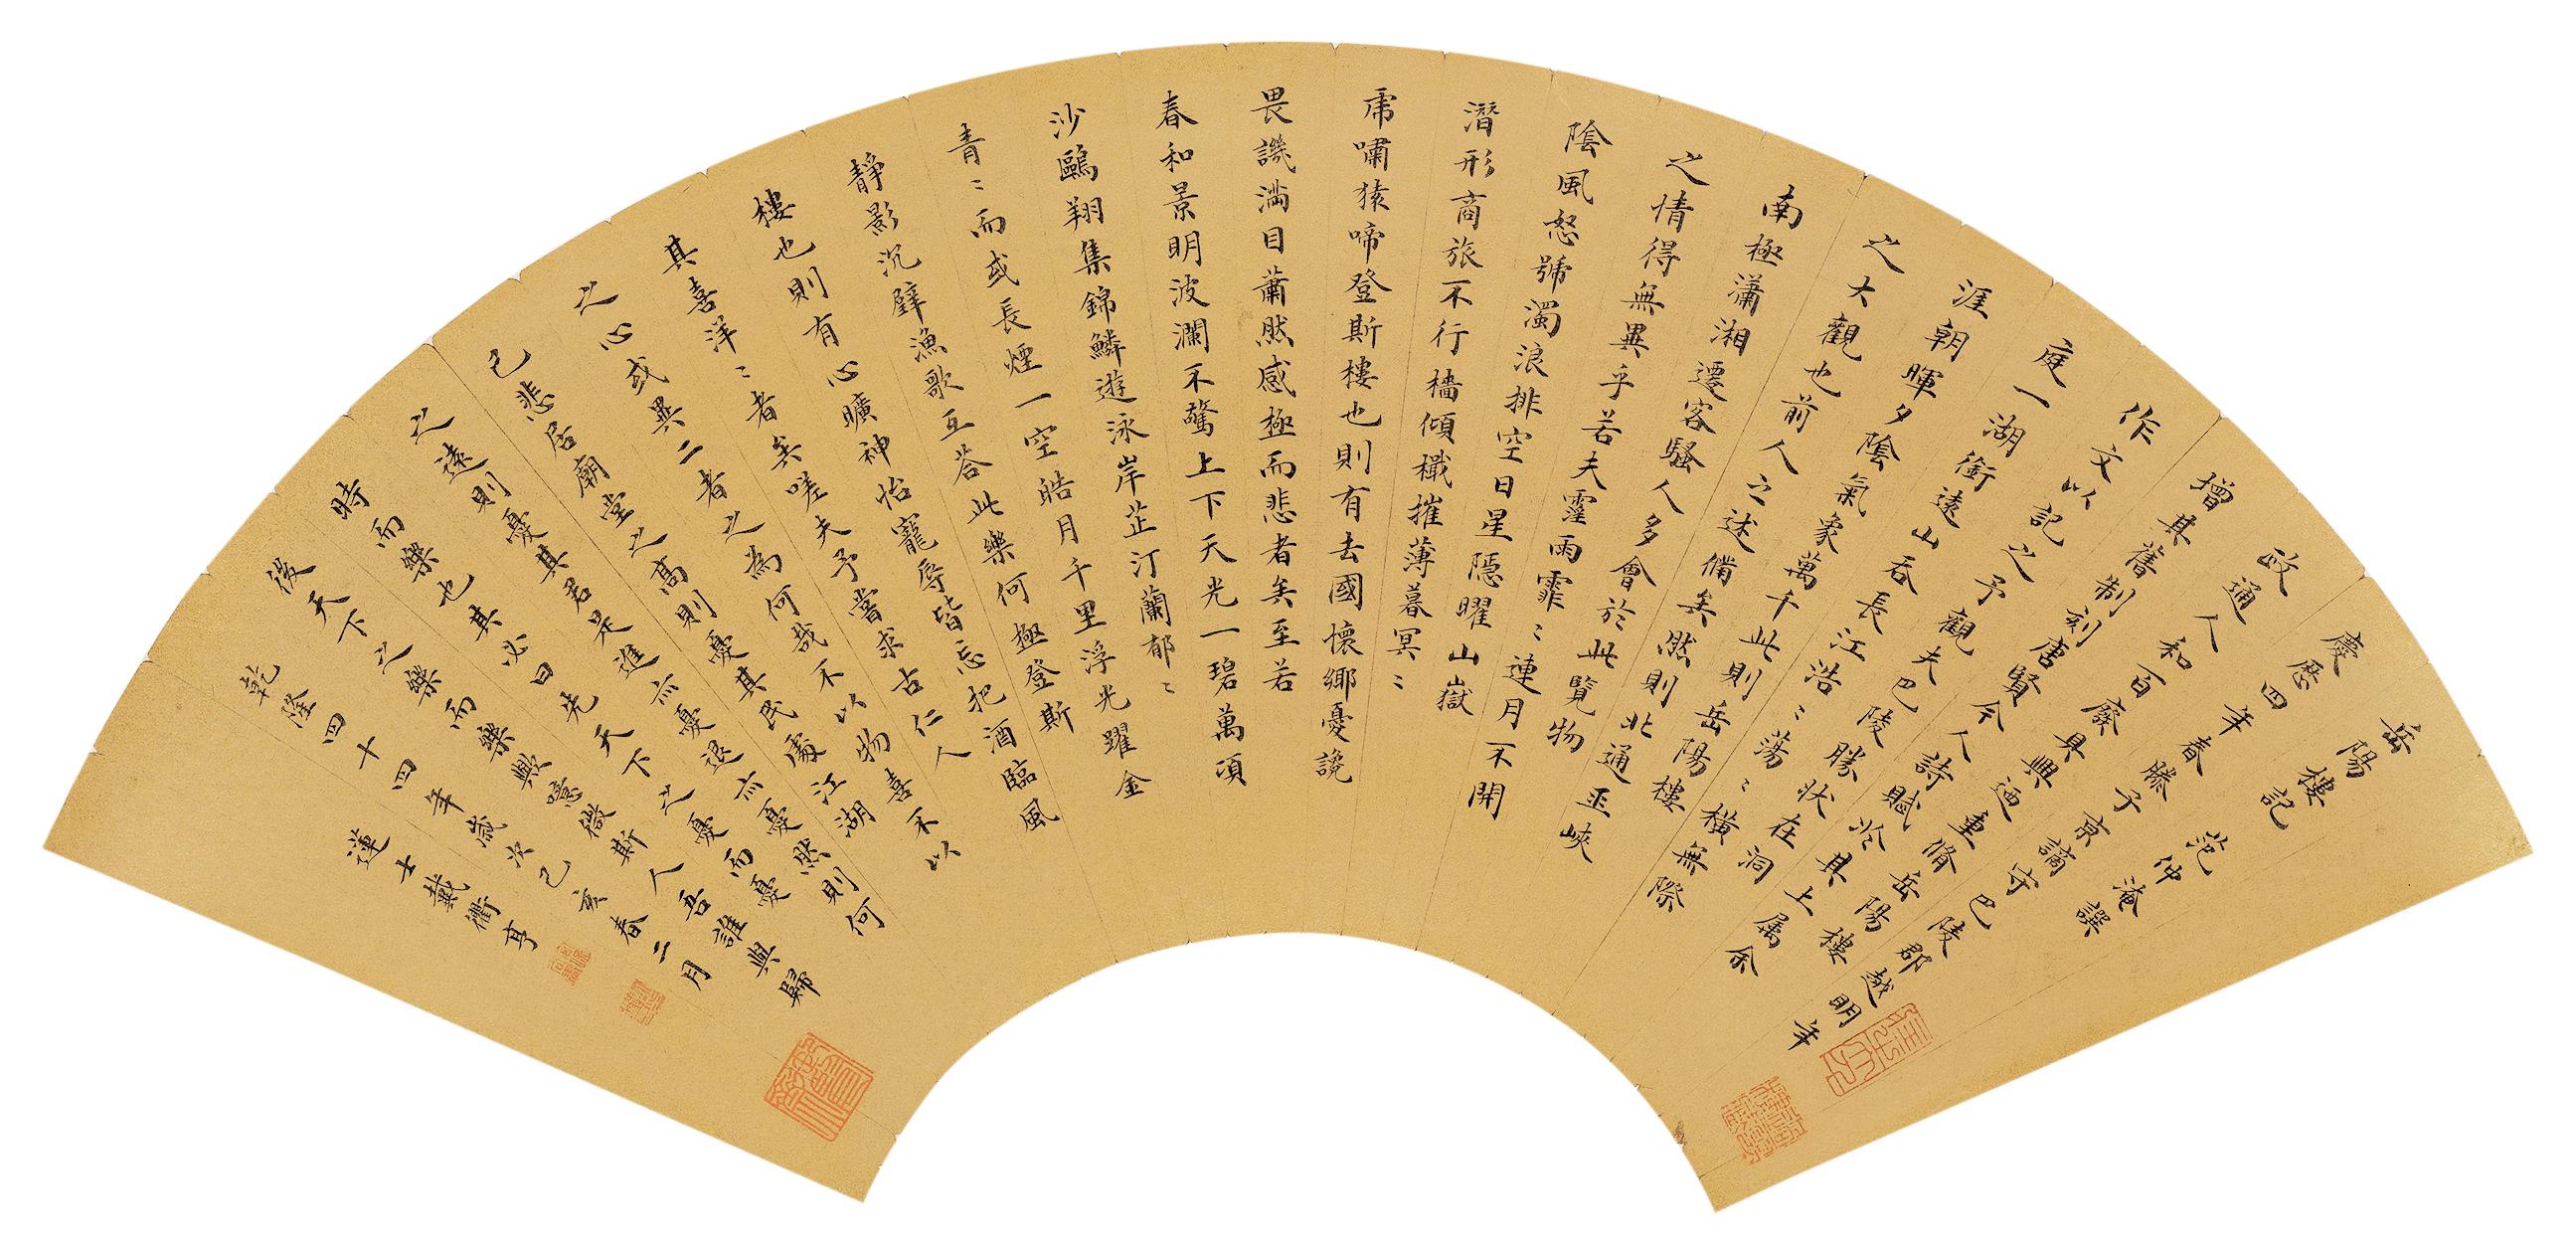 岳陽樓記 范仲淹譔
慶歷四年春滕子京謫守巴陵郡越明年
政通人和百廢具興迺重脩岳陽樓
增其舊制刻唐賢今人詩賦於其上属余
作文以記之予觀夫巴陵勝状在洞
庭一湖銜遠山吞長江浩〻蕩〻橫無際
涯朝暉夕陰氣象萬千此則岳陽樓
之大觀也前人之述備矣然則北通巫峽
南極瀟湘遷客騷人多會於此覽物
之情得無異乎若夫霪雨霏〻連月不開
陰風怒號濁浪排空日星隱曜山嶽
潛形商旅不行檣傾檝摧薄暮冥〻
虎嘯猿啼登斯樓也則有去國懷鄉憂讒
畏譏滿目蕭然感極而悲者矣至若
春和景明波瀾不驚上下天光一碧萬頃
沙鷗翔集錦鱗遊泳岸芷汀蘭郁〻
青〻而或長煙一空皓月千里浮光躍金
静影沉璧漁歌互荅此樂何極登斯
樓也則有心曠神怡寵辱皆忘把酒臨風
其喜洋〻者矣嗟夫予嘗求古仁人
之心或異二者之為何哉不以物喜不以
己悲居廟堂之高則憂其民處江湖
之遠則憂其君是進亦憂退亦憂然則何
時而樂也其必曰先天下之憂而憂
後天下之樂而樂歟噫微斯人吾誰與歸
乾隆四十四年歲次己亥春二月
蓮士戴衢亨